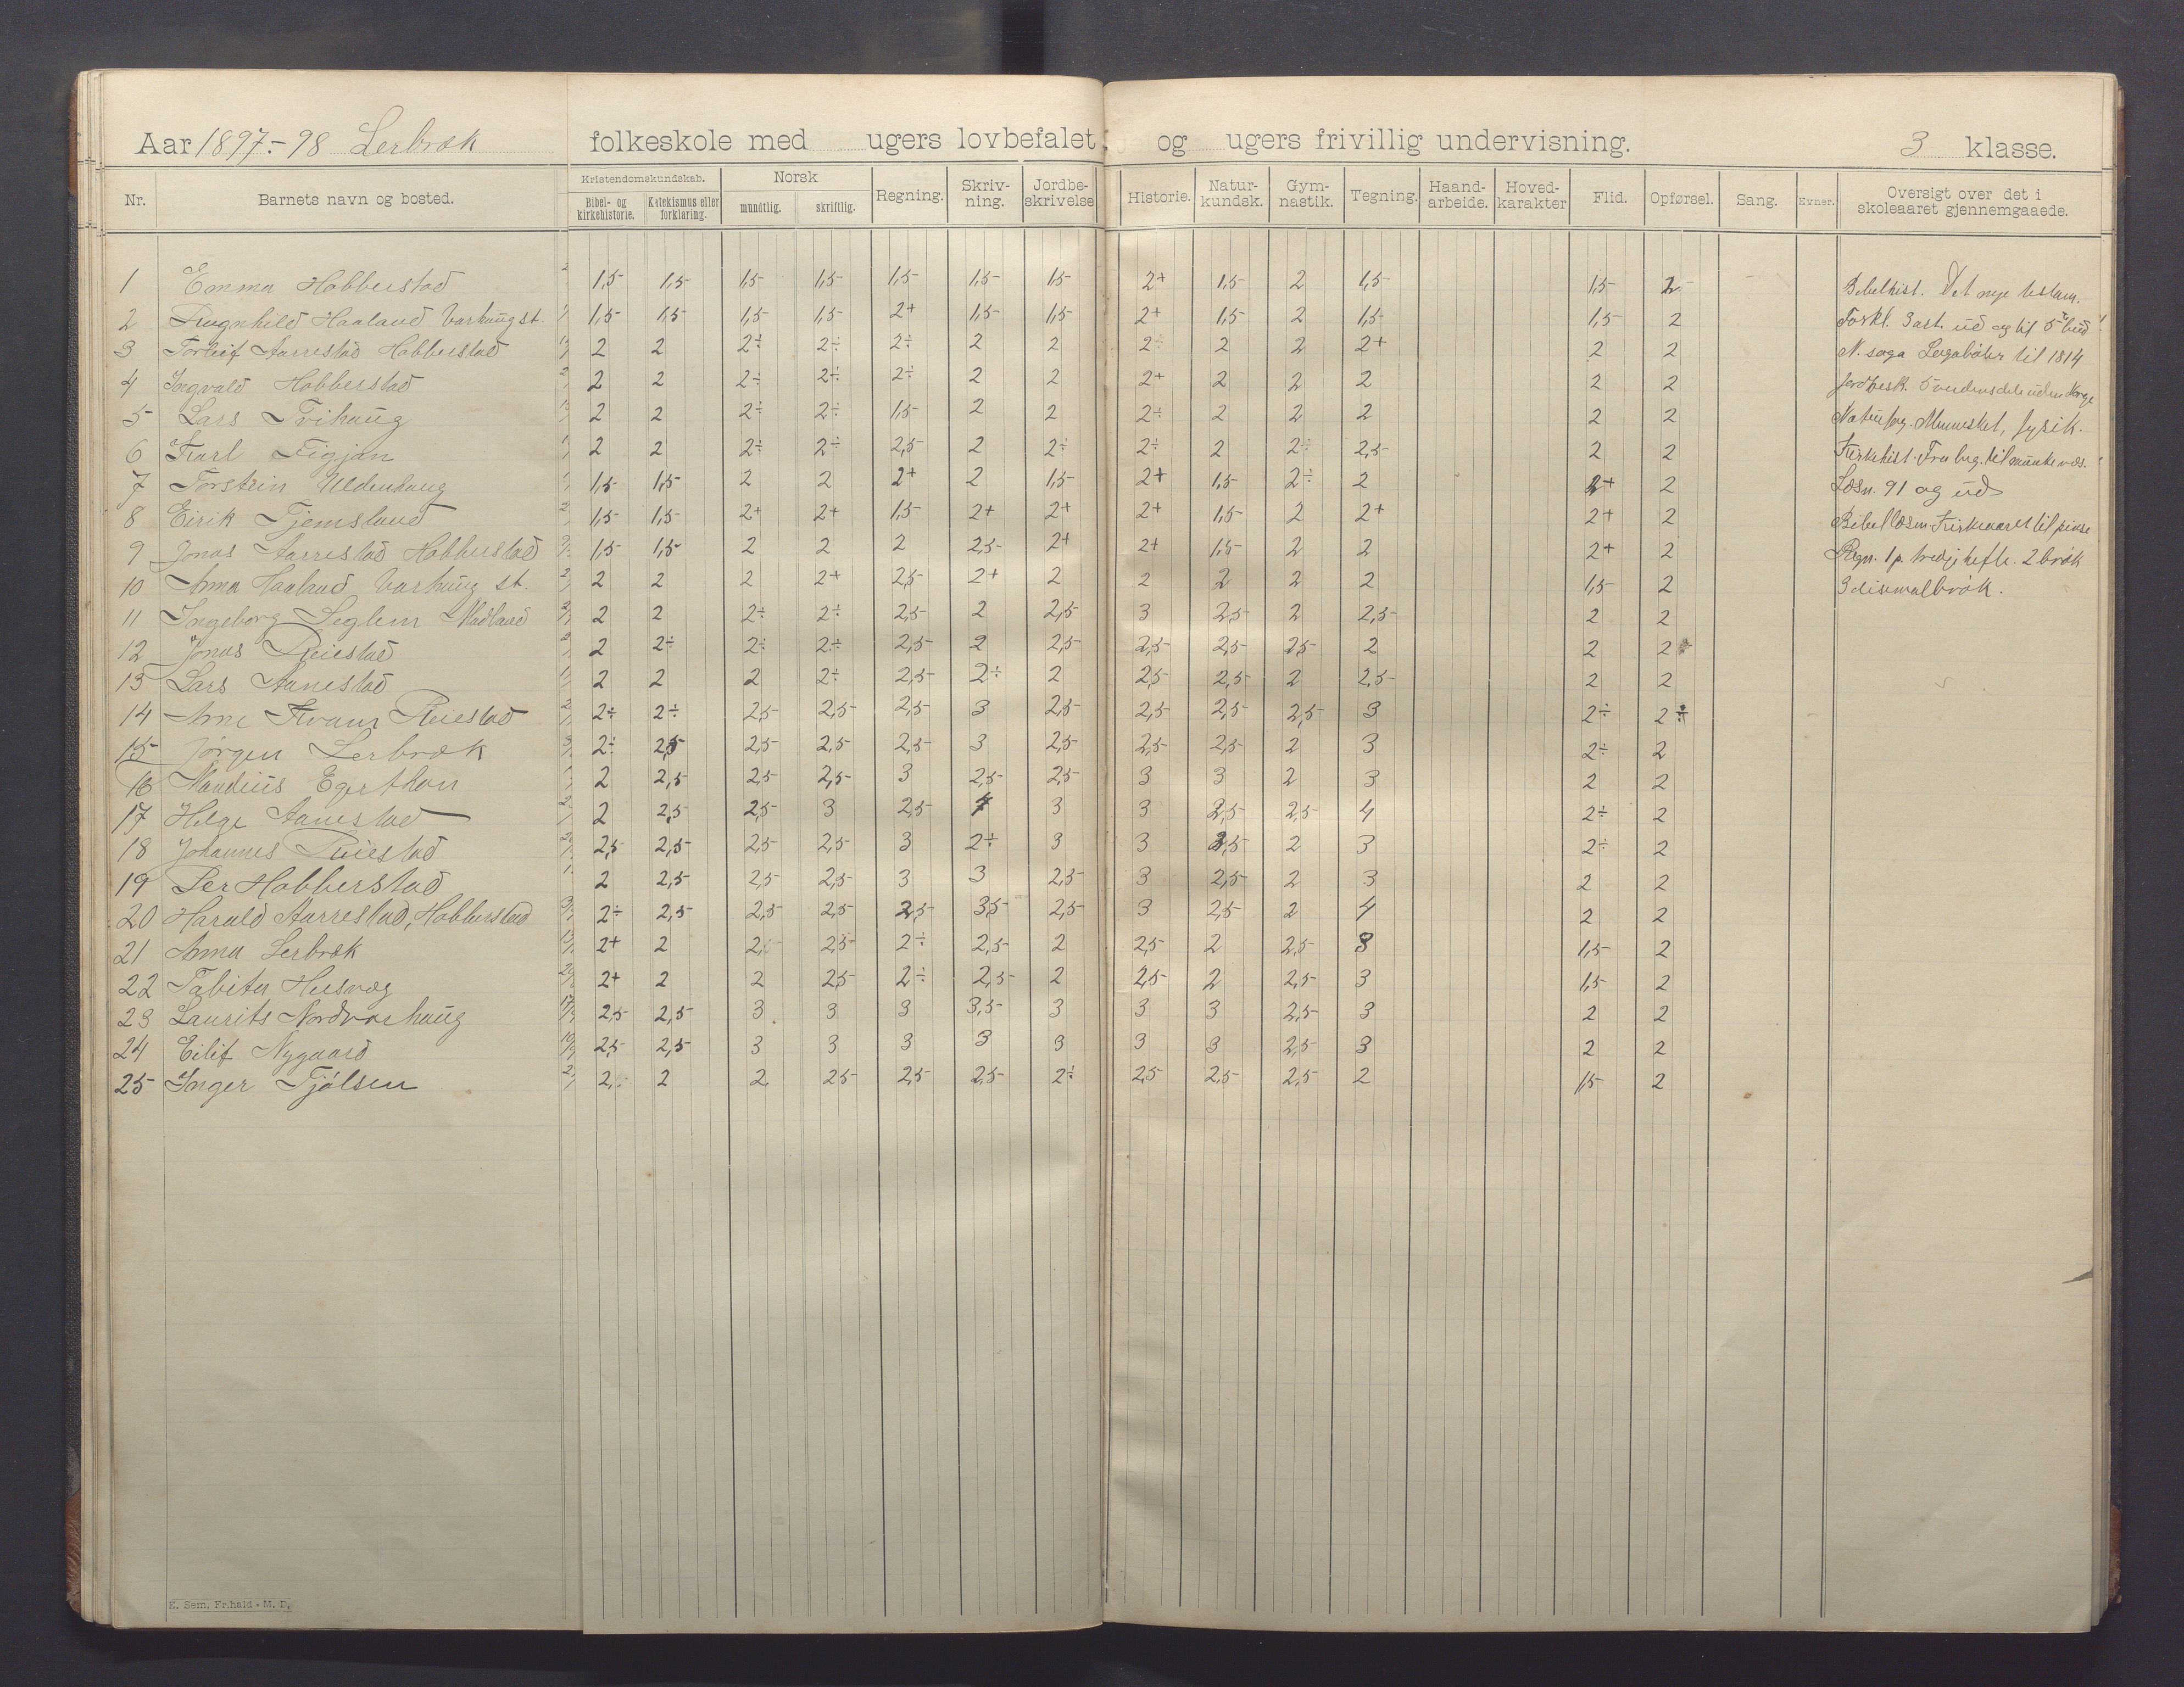 Aar 1897.-98 Lerbræk folkeskole med ugers lovbefalet og ugers frivillig undervisning. 3 klasse.
Nr. Barnets navn og bosted. Kristendomskundskab. Bibel- og kirkehistorie. Katekismus eller forklaring. Norsk mundtlig. skriftlig. Regning. Skrivning. Jordbeskrivelse Historie. Naturkundsk. Gymnastik. Tegning. Haandarbeide. Hovedkarakter Flid. Opførsel. Sang. Evner. Oversigt over det i skoleaaret gjennemgaaede.
1 Emma Hobberstad 1,5 1,5 1,5 1,5 1,5 1,5 1,5 2+ 1,5 2 1,5 1,5 2 Bibelhist. Det nye testam.
2 Ragnhild Haaland Varhaug st. 1,5 1,5 1,5 1,5 2+ 1,5 1,5 2+ 1,5 2 1,5 1,5 2 Forkl. 3 art. ud og til 5 bud
3 Torleif Aarrestad Hobberstad 2 2 2÷ 2÷ 2÷ 2 2 2÷ 2 2 2+ 2 2 N. soga til 1814
4 Ingvald Hobberstad 2 2 2÷ 2÷ 2÷ 2 2 2+ 2 2 2 2 2 Jordbesk. 5 verdensdele uden Norge
5 Lars Tvihaug 2 2 2÷ 2÷ 1,5 2 2 2÷ 2 2 2 2 2 Naturfag. Mennesket, fysik.
6 Karl Figjan 2 2 2÷ 2÷ 2,5 2 2÷ 2÷ 2 2÷ 2,5 2 2 Kirkehist. Fra beg. til munkevæs.
7 Torstein Uldenhaug 1,5 1,5 2 2 2+ 2 1,5 2+ 1,5 2÷ 2 2+ 2 Læsn. 91 og ud
8 Eirik Tjemsland 1,5 1,5 2+ 2+ 1,5 2+ 2+ 2+ 1,5 2 2+ 2+ 2 Bibellæsn. Kirkeaaret til pinse
9 Jonas Aarrestad Hobberstad 1,5 1,5 2 2 2 2,5 2+ 2+ 1,5 2 2 2+ 2 Regn. 1 p. tredje hefte. 2 brøk
10 Anna Haaland Varhaug st. 2 2 2 2+ 2,5 2+ 2 2 2 2 2 1,5 2 3 disimalbrøk.
11 Ingeborg Seglem Madland 2 2 2÷ 2÷ 2,5 2 2,5 3 2,5 2 2,5 2 2
12 Jonas Reiestad 2 2÷ 2÷ 2÷ 2,5 2 2,5 2,5 2,5 2,5 2 2 2
13 Lars Aanestad 2 2 2 2÷ 2,5 2÷ 2 2,5 2,5 2 2,5 2 2
14 Arne Kvam Reiestad 2÷ 2÷ 2,5 2,5 2,5 3 2,5 2,5 2,5 2,5 3 2÷ 2÷
15 Jörgen Lerbræk 2÷ 2,5 2,5 2,5 2,5 3 2,5 2,5 2,5 2 3 2÷ 2
16 Nandius Egerthon 2 2,5 2,5 2,5 3 2,5 2,5 3 3 2 3 2 2
17 Helge Aanestad 2 2,5 2,5 3 2,5 4 3 3 2,5 2,5 4 2÷ 2
18 Johannes Reiestad 2,5 2,5 2,5 2,5 3 2÷ 3 3 2,5 2 3 2÷ 2
19 Per Hobberstad 2 2,5 2,5 2,5 3 3 2,5 3 2,5 2 3 2 2
20 Harald Aarrestad, Hobberstad 2÷ 2,5 2,5 2,5 2,5 3,5 2,5 3 2,5 2 4 2 2
21 Anna Lerbræk 2+ 2 2, 2,5 2÷ 2,5 2 2,5 2 2,5 3 1,5 2
22 Tabita Husvæg 2+ 2 2 2,5 2÷ 2,5 2 2,5 2 2,5 3 1,5 2
23 Laurits Nordvarhaug 2,5 2,5 3 3 3 3,5 3 3 3 2,5 3 2 2
24 Eilif Nygaard 2,5 2,5 3 3 3 3 3 3 3 2,5 3 2 2
25 Inger Tjölsen 2 2 2 2,5 2,5 2,5 2÷ 2,5 2,5 2,5 2 1,5 2
E. Sem. Fr.hald - M. D.